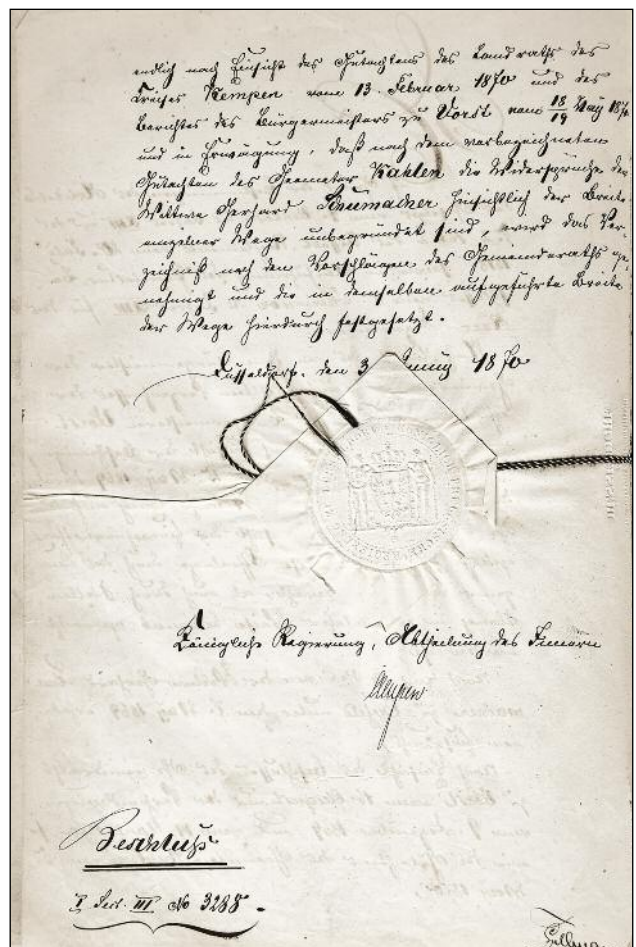 endlich nach Einsicht des Gutachtens des Landraths des
Kreises Kempen vom 13. Februar 1870 und des
Berichtes des Bürgermeisters zu Vorst vom 18/19 May 1870
und in Erwägung, daß nach dem vorbezeichneten
Gutachten des Geometer Kahlen die Widersprüche der
Wittwe Gerhard Schumacher hinsichtlich der Breite
einzelner Wege unbegründet sind, wird das Ver-
zeichniß nach den Vorschlägen des Gemeinderaths ge-
nehmigt und die in demselben aufgeführte Breite
der Wege hierdurch festgesetzt.
Düsseldorf, den 3 Juny 1870
Königliche Regierung, Abtheilung des Innern
Beschluß
I Sect. III No 3288.